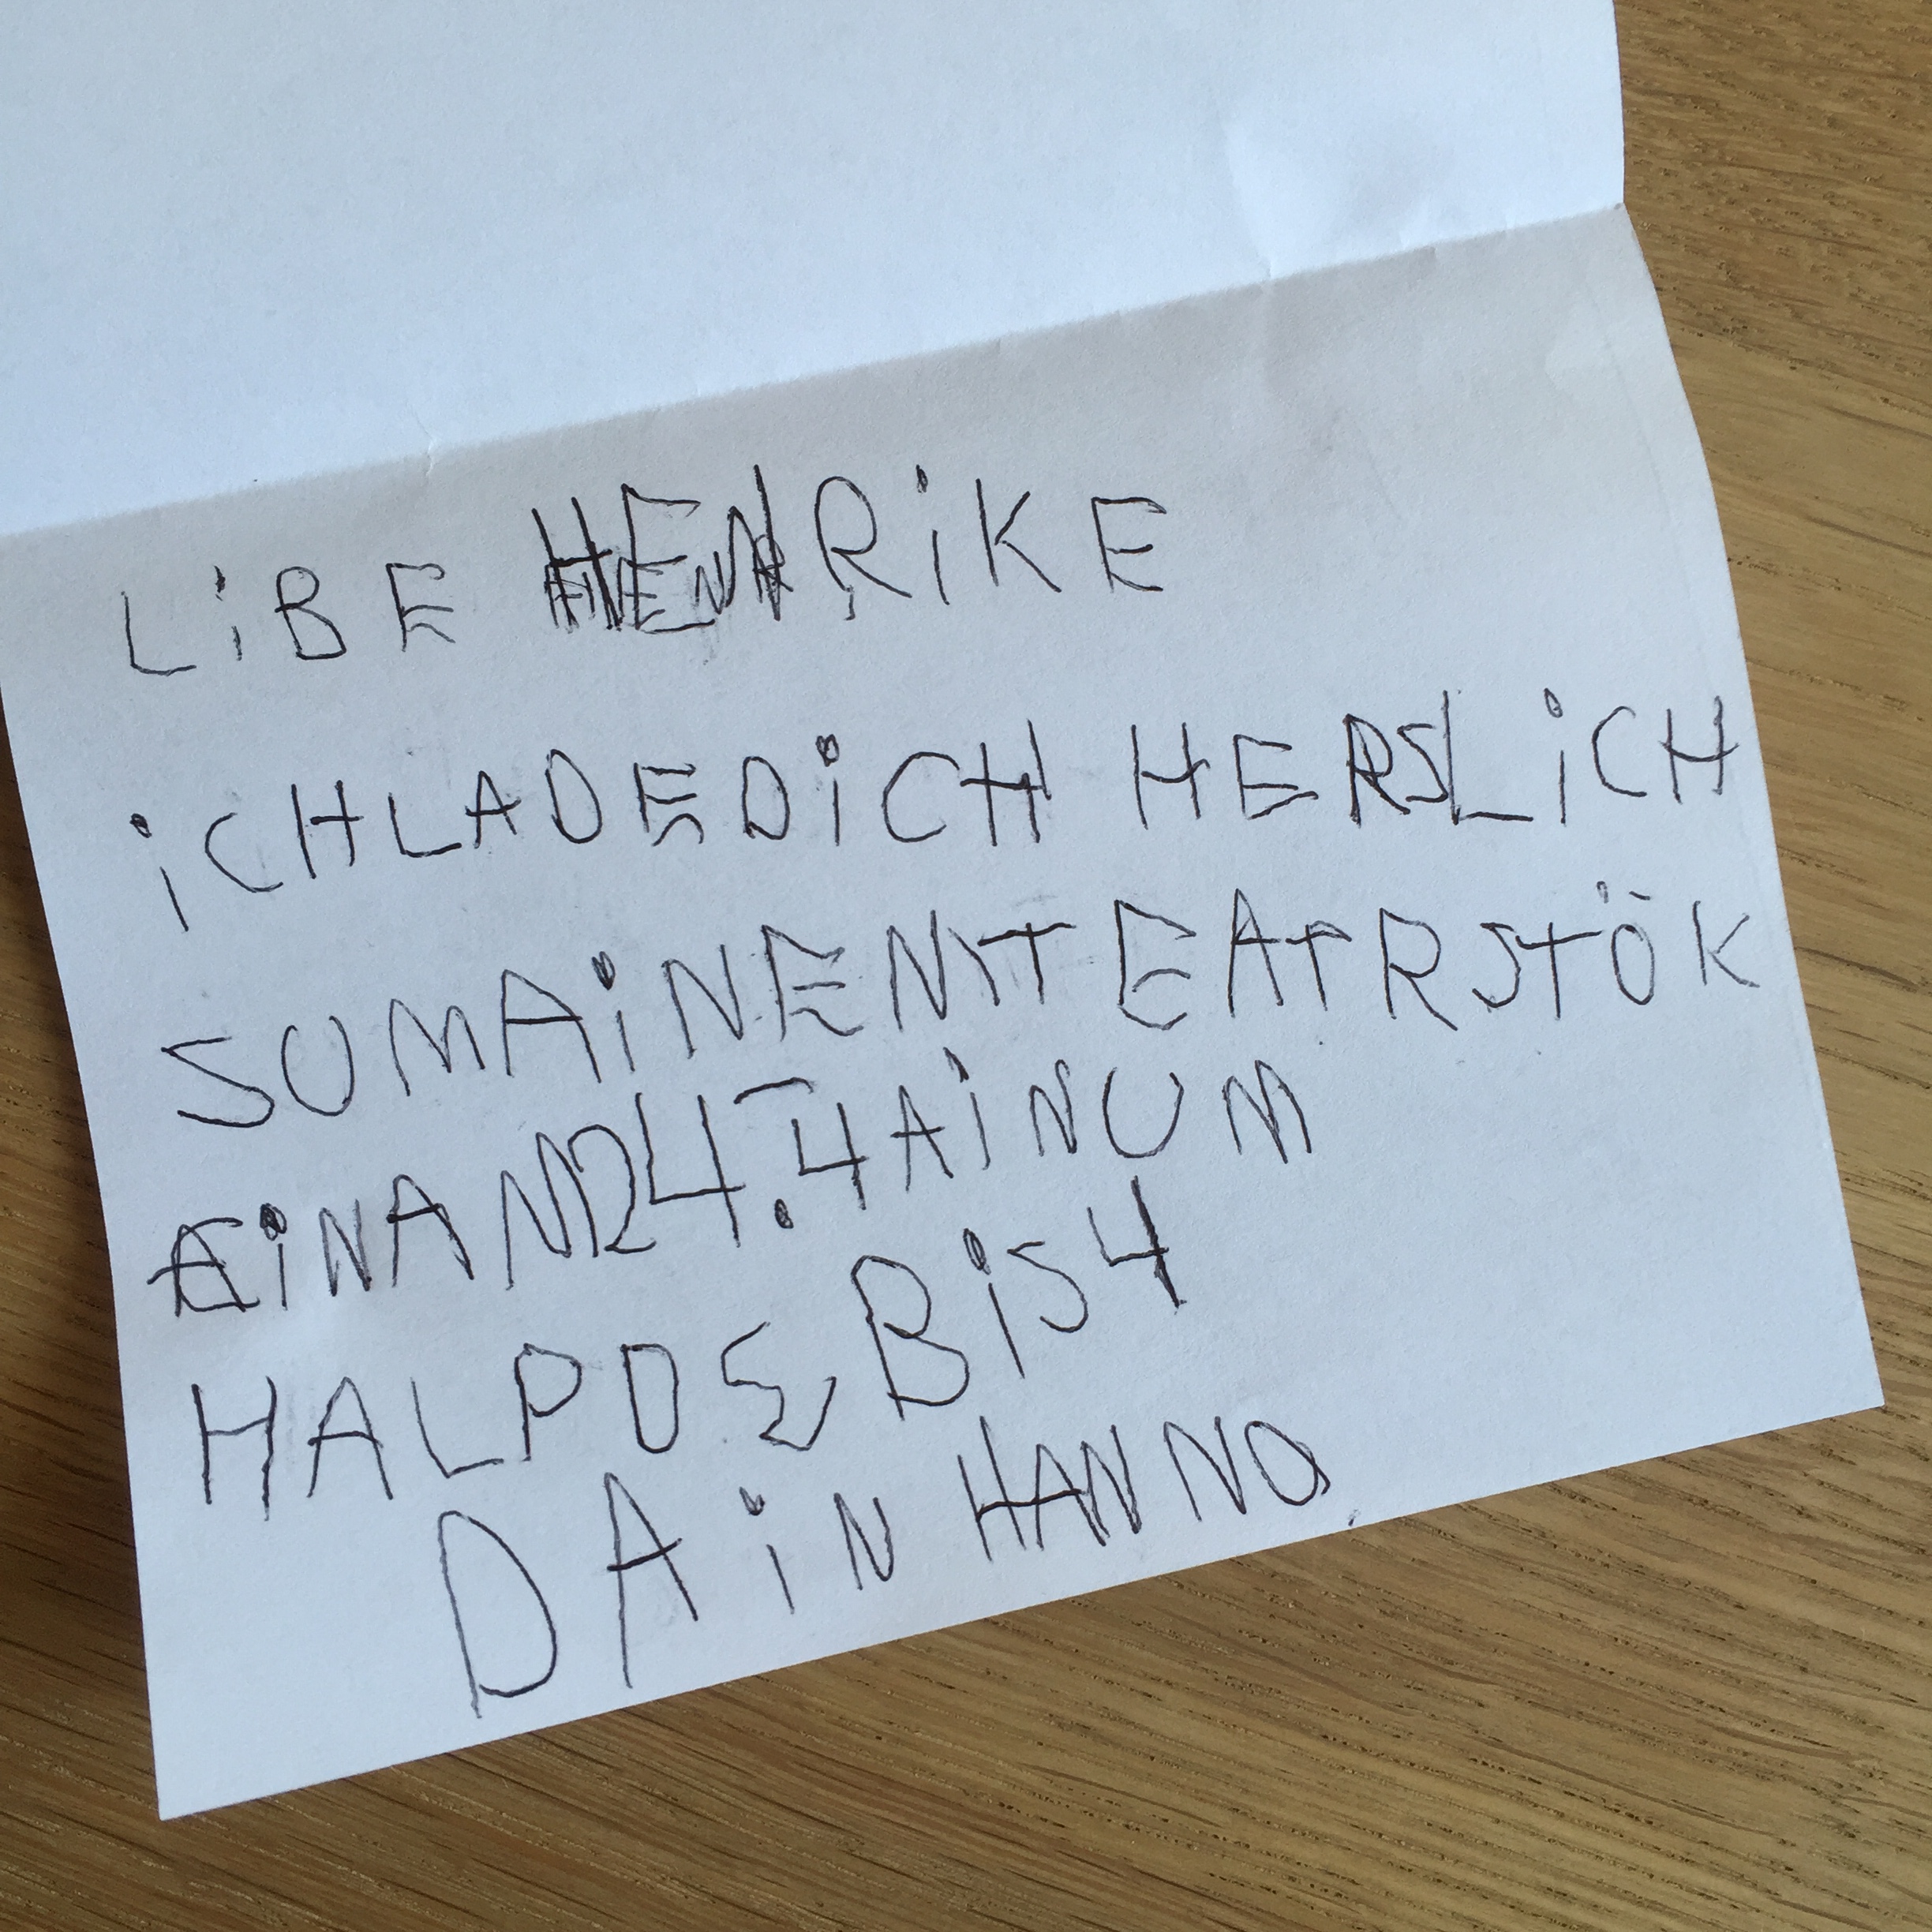 LiBE HENRiKE
iCHLADEDiCH HERSLiCH
SUMAiNEMTEATRSTÖK
EiNAN24.4AiNUM
HALPDE BiS4
DAiN HANNO